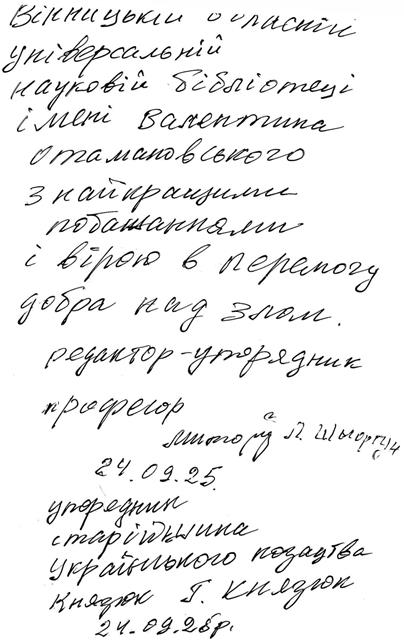 Вінницькій обласній
універсальній
науковій бібліотеці
імені Валентина
Отамановського
з найкращими
побажаннями
і вірою в перемогу
добра над злом.
редактор-упорядник
професор
24.09.25
упорядник
старійшина
Українського козацтва
Князюк Г. Князюк
24.09.25р.